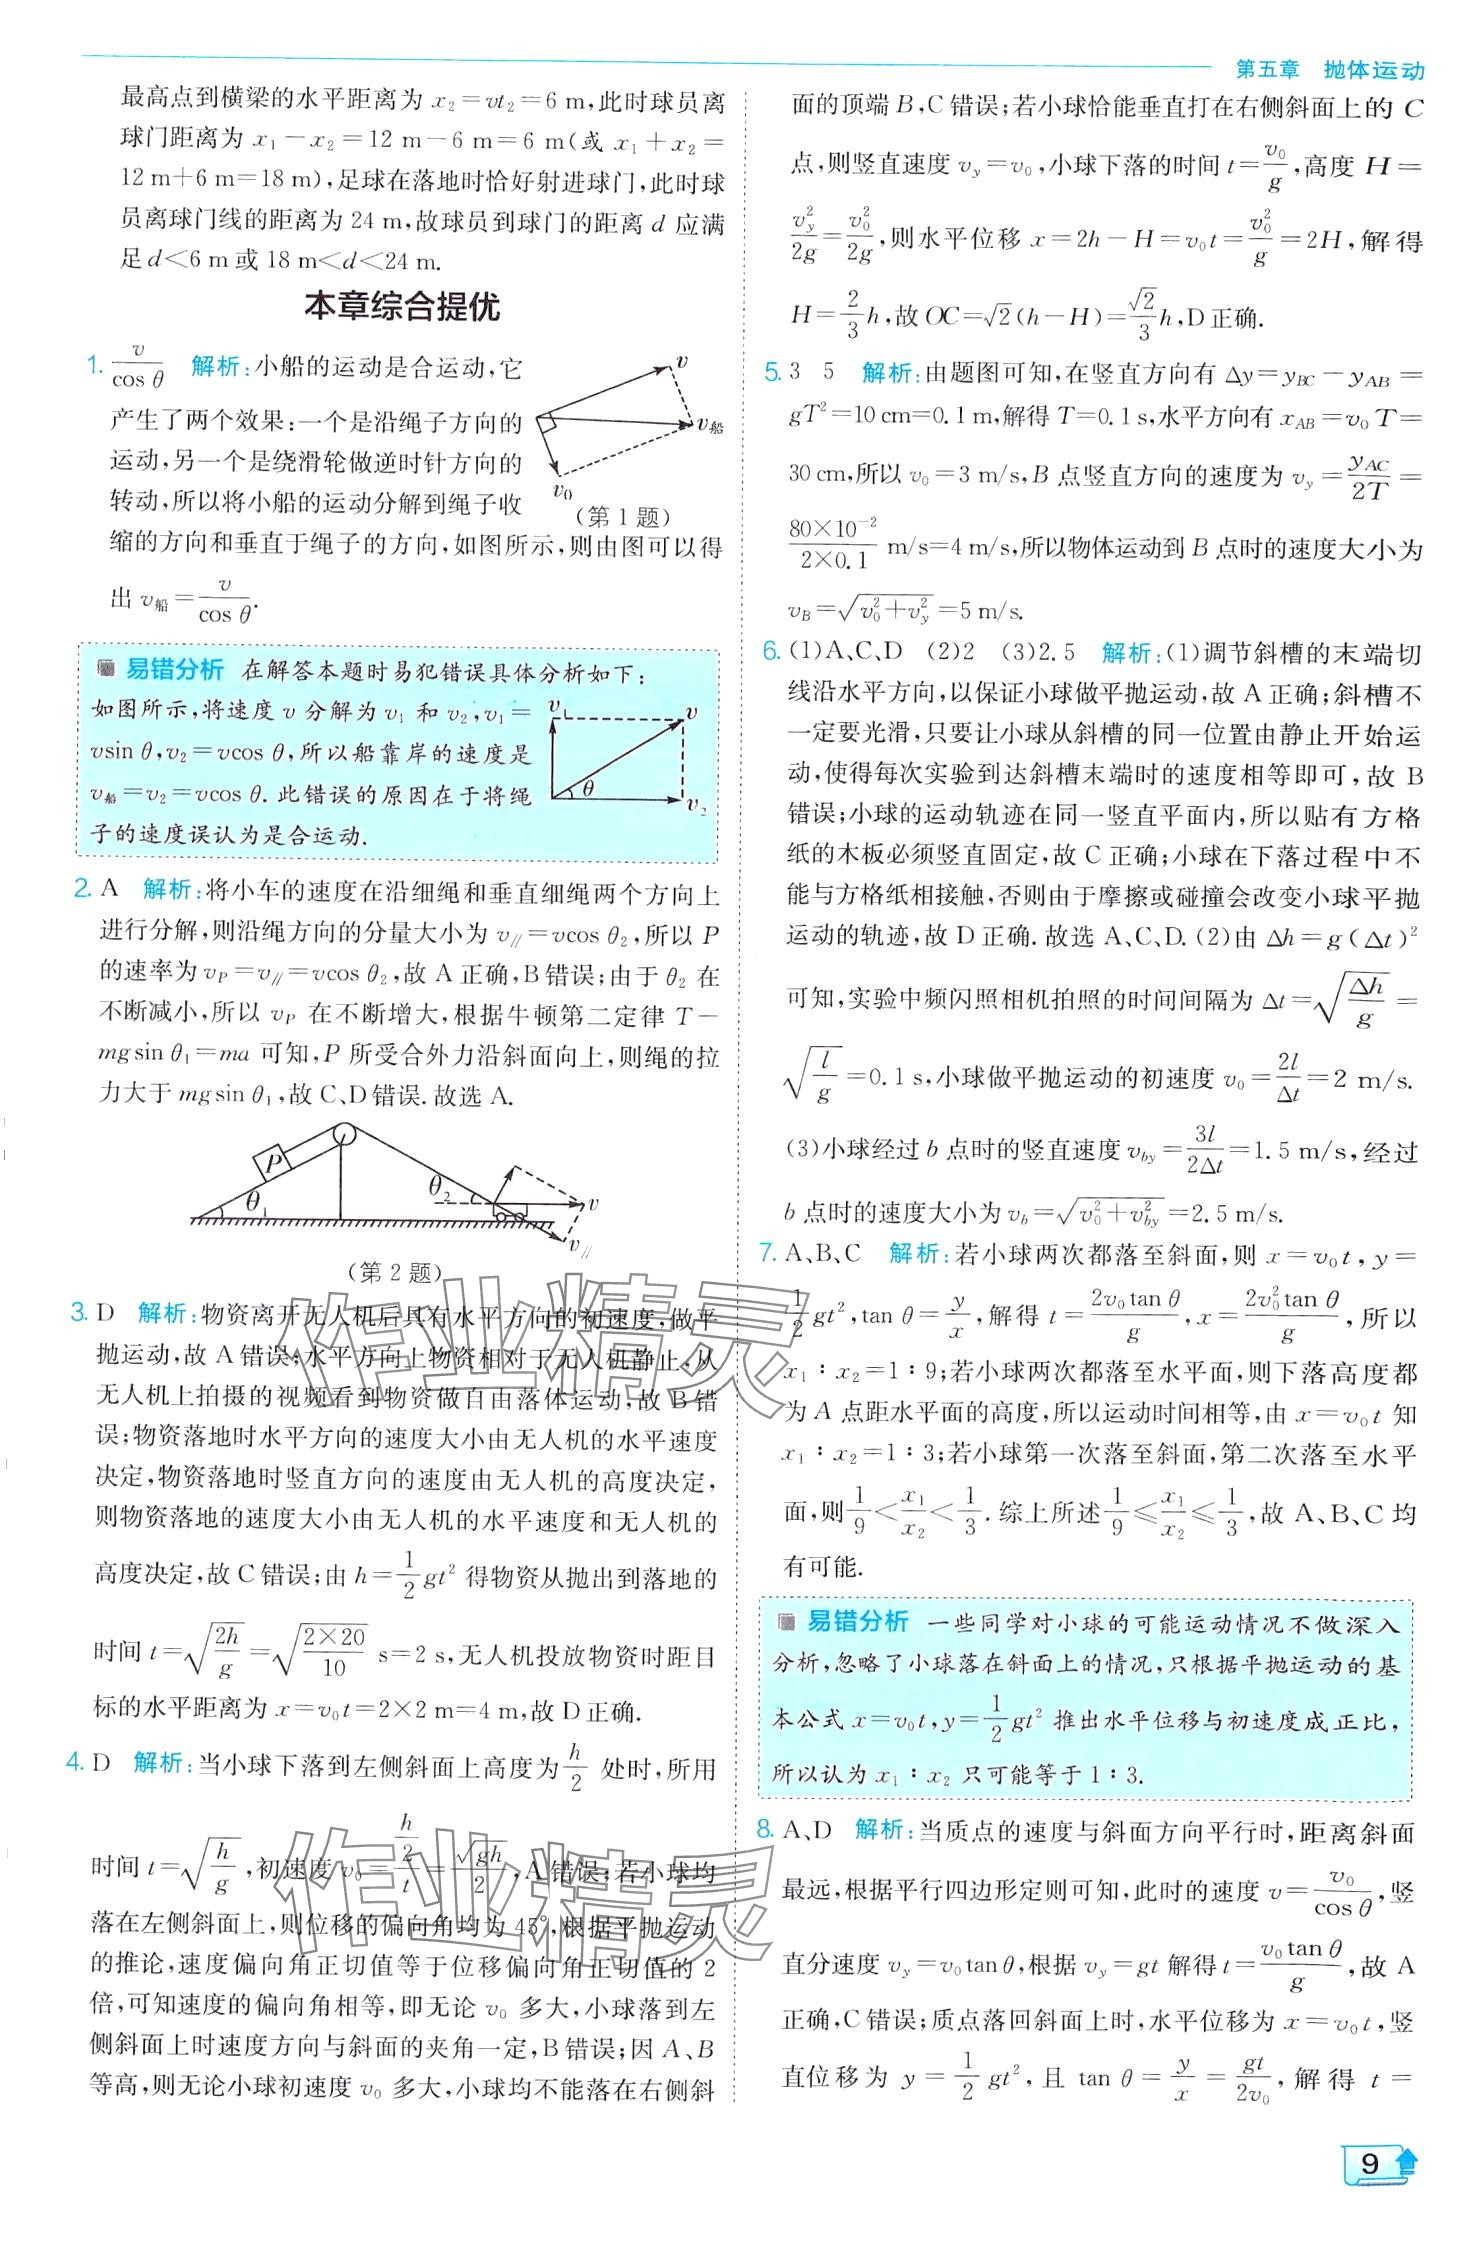 第五章　抛体运动
最高点到横梁的水平距离为 x₂=vt₂=6 m,此时球员离
球门距离为 x₁-x₂=12 m-6 m=6 m(或 x₁+x₂=
12 m+6 m=18 m),足球在落地时恰好射进球门,此时球
员离球门线的距离为 24 m,故球员到球门的距离 d 应满
足 d<6 m 或 18 m<d<24 m.
本章综合提优
1. v/cos θ　解析:小船的运动是合运动,它
产生了两个效果:一个是沿绳子方向的
运动,另一个是绕滑轮做逆时针方向的
转动,所以将小船的运动分解到绳子收
缩的方向和垂直于绳子的方向,如图所示,则由图可以得
出 v船=v/cos θ.
v
v船
v₀
(第 1 题)
易错分析　在解答本题时易犯错误具体分析如下:
如图所示,将速度 v 分解为 v₁ 和 v₂,v₁=
vsin θ,v₂=vcos θ,所以船靠岸的速度是
v船=v₂=vcos θ.此错误的原因在于将绳
子的速度误认为是合运动.
v₁
v
θ
v₂
2. A　解析:将小车的速度在沿细绳和垂直细绳两个方向上
进行分解,则沿绳方向的分量大小为 v∥=vcos θ₂,所以 P
的速率为 vP=v∥=vcos θ₂,故 A 正确,B 错误;由于 θ₂ 在
不断减小,所以 vP 在不断增大,根据牛顿第二定律 T-
mgsin θ₁=ma 可知,P 所受合外力沿斜面向上,则绳的拉
力大于 mgsin θ₁,故 C、D 错误.故选 A.
P
θ₁
θ₂
v
v∥
(第 2 题)
3. D　解析:物资离开无人机后具有水平方向的初速度,做平
抛运动,故 A 错误;水平方向上物资相对于无人机静止,从
无人机上拍摄的视频看到物资做自由落体运动,故 B 错
误;物资落地时水平方向的速度大小由无人机的水平速度
决定,物资落地时竖直方向的速度由无人机的高度决定,
则物资落地的速度大小由无人机的水平速度和无人机的
高度决定,故 C 错误;由 h=1/2 gt² 得物资从抛出到落地的
时间 t=√(2h/g)=√(2×20/10) s=2 s,无人机投放物资时距目
标的水平距离为 x=v₀t=2×2 m=4 m,故 D 正确.
4. D　解析:当小球下落到左侧斜面上高度为 h/2 处时,所用
时间 t=√(h/g),初速度 v₀=(h/2)/t=√(gh)/2,A 错误;若小球均
落在左侧斜面上,则位移的偏向角均为 45°,根据平抛运动
的推论,速度偏向角正切值等于位移偏向角正切值的 2
倍,可知速度的偏向角相等,即无论 v₀ 多大,小球落到左
侧斜面上时速度方向与斜面的夹角一定,B 错误;因 A、B
等高,则无论小球初速度 v₀ 多大,小球均不能落在右侧斜
面的顶端 B,C 错误;若小球恰能垂直打在右侧斜面上的 C
点,则竖直速度 vy=v₀,小球下落的时间 t=v₀/g,高度 H=
vy²/2g=v₀²/2g,则水平位移 x=2h-H=v₀t=v₀²/g=2H,解得
H=2/3 h,故 OC=√2(h-H)=√2/3 h,D 正确.
5. 3　5　解析:由题图可知,在竖直方向有 Δy=yBC-yAB=
gT²=10 cm=0.1 m,解得 T=0.1 s,水平方向有 xAB=v₀T=
30 cm,所以 v₀=3 m/s,B 点竖直方向的速度为 vy=yAC/2T=
80×10⁻²/2×0.1 m/s=4 m/s,所以物体运动到 B 点时的速度大小为
vB=√(v₀²+vy²)=5 m/s.
6. (1)A、C、D　(2)2　(3)2.5　解析:(1)调节斜槽的末端切
线沿水平方向,以保证小球做平抛运动,故 A 正确;斜槽不
一定要光滑,只要让小球从斜槽的同一位置由静止开始运
动,使得每次实验到达斜槽末端时的速度相等即可,故 B
错误;小球的运动轨迹在同一竖直平面内,所以贴有方格
纸的木板必须竖直固定,故 C 正确;小球在下落过程中不
能与方格纸相接触,否则由于摩擦或碰撞会改变小球平抛
运动的轨迹,故 D 正确.故选 A、C、D.(2)由 Δh=g(Δt)²
可知,实验中频闪照相机拍照的时间间隔为 Δt=√(Δh/g)=
√(l/g)=0.1 s,小球做平抛运动的初速度 v₀=2l/Δt=2 m/s.
(3)小球经过 b 点时的竖直速度 vby=3l/2Δt=1.5 m/s,经过
b 点时的速度大小为 vb=√(v₀²+vby²)=2.5 m/s.
7. A、B、C　解析:若小球两次都落至斜面,则 x=v₀t,y=
1/2 gt²,tan θ=y/x,解得 t=2v₀tan θ/g,x=2v₀²tan θ/g,所以
x₁∶x₂=1∶9;若小球两次都落至水平面,则下落高度都
为 A 点距水平面的高度,所以运动时间相等,由 x=v₀t 知
x₁∶x₂=1∶3;若小球第一次落至斜面,第二次落至水平
面,则1/9<x₁/x₂<1/3.综上所述1/9≤x₁/x₂≤1/3,故 A、B、C 均
有可能.
易错分析　一些同学对小球的可能运动情况不做深入
分析,忽略了小球落在斜面上的情况,只根据平抛运动的基
本公式 x=v₀t,y=1/2 gt² 推出水平位移与初速度成正比,
所以认为 x₁∶x₂ 只可能等于 1∶3.
8. A、D　解析:当质点的速度与斜面方向平行时,距离斜面
最远,根据平行四边形定则可知,此时的速度 v=v₀/cos θ,竖
直分速度 vy=v₀tan θ,根据 vy=gt 解得 t=v₀tan θ/g,故 A
正确,C 错误;质点落回斜面上时,水平位移为 x=v₀t,竖
直位移为 y=1/2 gt²,且 tan θ=y/x=gt/2v₀,解得 t=
9
作业精灵
作业精灵